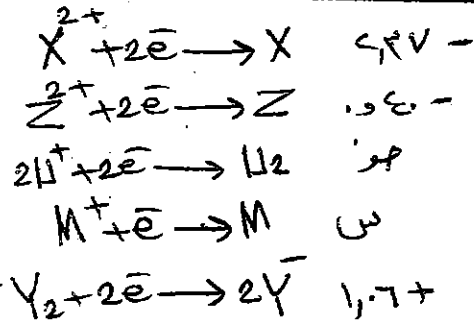 X²⁺ + 2e⁻ → X   ٢,٣٧ −
Z²⁺ + 2e⁻ → Z   ٠,٤٠ −
2H⁺ + 2e⁻ → H₂   صفر
M⁺ + e⁻ → M   س
Y₂ + 2e⁻ → 2Y⁻   ١,٠٦ +